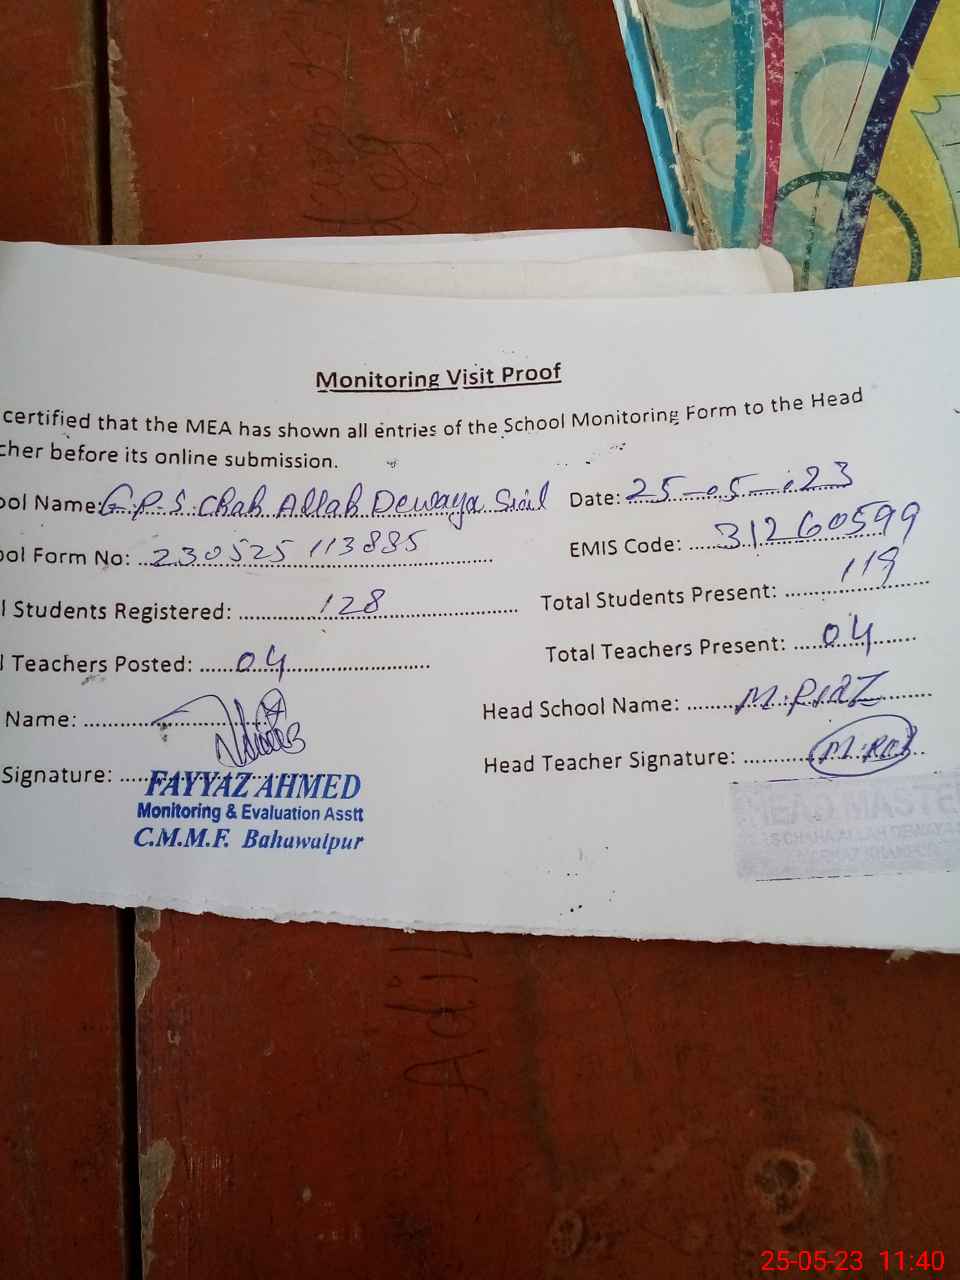 Monitoring Visit Proof
certified that the MEA has shown all entries of the School Monitoring Form to the Head
cher before its online submission.
ool Name: G.P.S. Chah Allah Dewaya Sial Date: 25-05-23
ool Form No: 230525113885 EMIS Code: 31260599
l Students Registered: 128 Total Students Present: 119
l Teachers Posted: 04 Total Teachers Present: 04
Name: Head School Name: M.RIAZ
Signature: Head Teacher Signature:
FAYYAZ AHMED
Monitoring & Evaluation Asstt
C.M.M.F. Bahawalpur
25-05-23 11:40